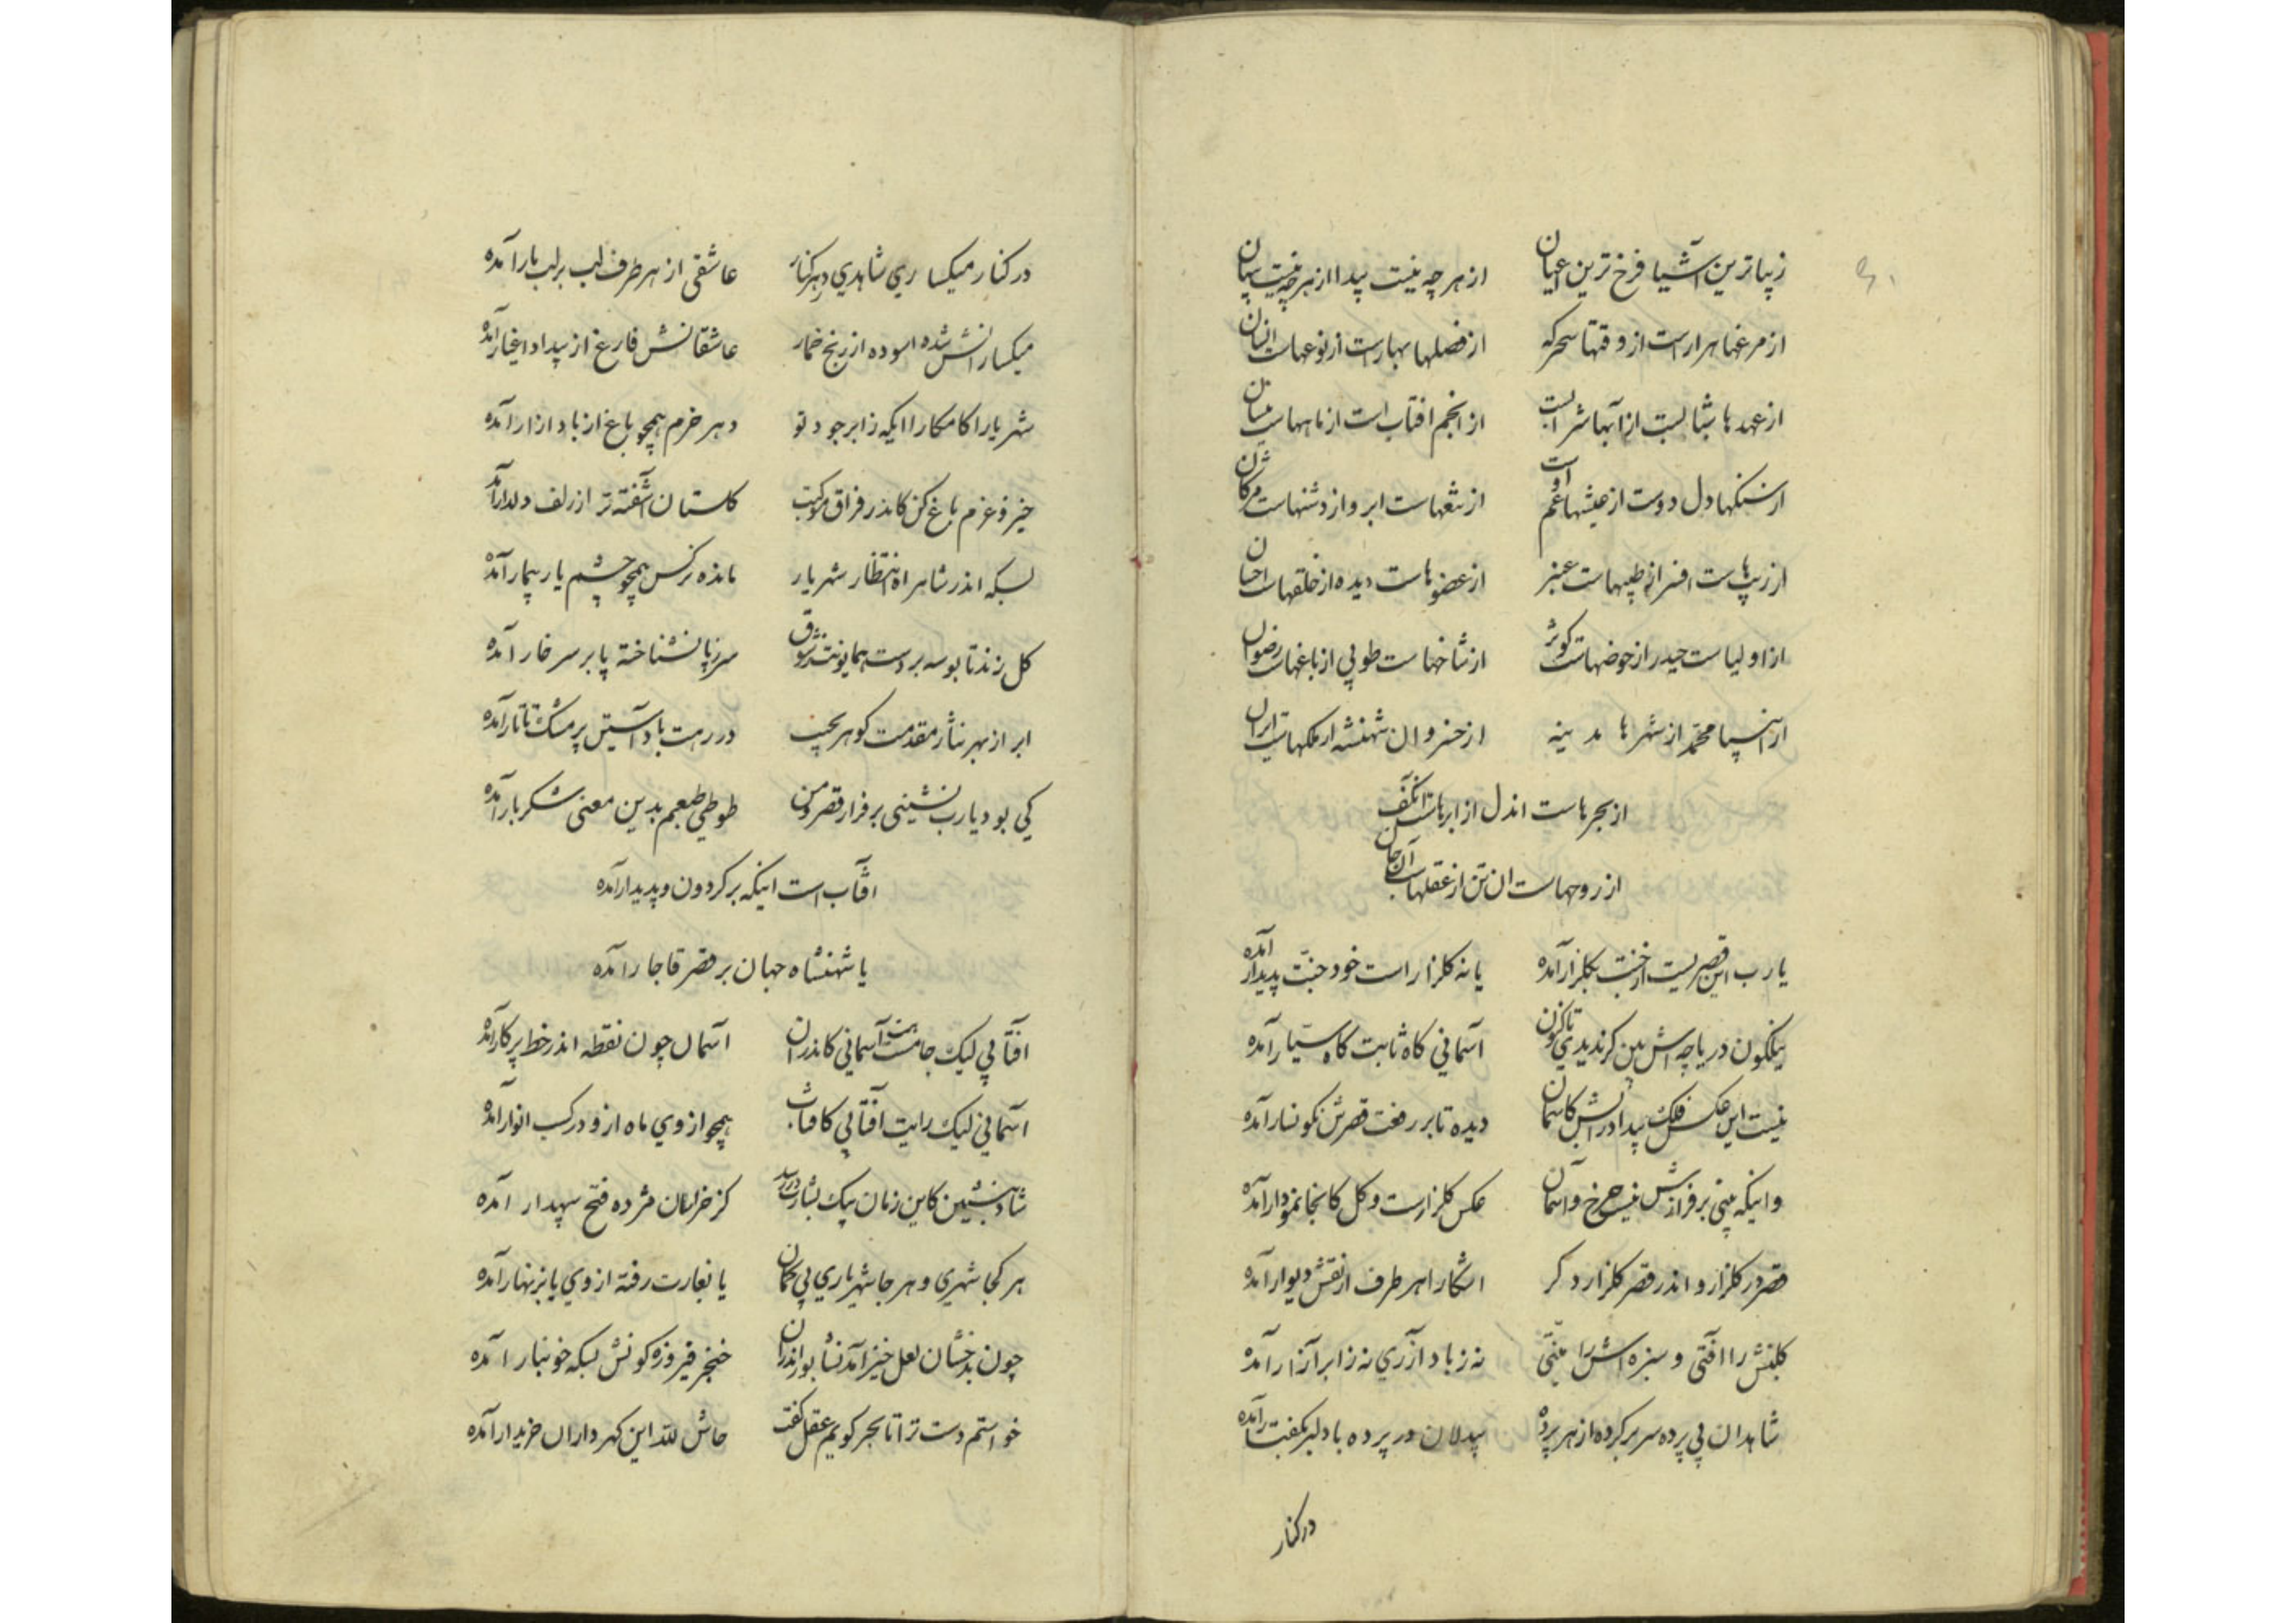 زیباترین اشیا فرخ ترین اعیان از هر چه نیست پیدا از هر چه نیست پنهان
از مرغها هزار است از وقتها سحرکه از فصلها بهارست از نوعهاست انسان
از عهدها شبابست از آبها شرابست از انجم افتاب است از ماههاست نیسان
از سنکها دل دوست از عیشها غم اوست از تیغهاست ابرو از دشنهاست مژکان
از زیبهاست افسر از طیبهاست عنبر از عضوهاست دیده از خلقهاست احسان
از اولیاست حیدر از حوضهاست کوثر از شاخهاست طوبی از باغهاست رضوان
از انبیا محمد از شهرها مدینه از خسروان شهنشه از ملکهاست ایران
از بحرهاست ان دل از ابرهاست ان کف
از روحهاست ان تن از عقلهاست آن جان
یا رب این قصریست از جنت بکلزار آمده یا نه کلزار است خود جنت پدیدار آمده
نیلکون دریاچه اش بین کر ندیدی تاکنون آسمانی کاه ثابت کاه سیار آمده
نیست این عکس فلک پیدا در آبش کاسمان دیده تا بر رفعت قصرش نکونسار آمده
وانیکه بینی بر فرازش نیست چرخ و آسمان عکس کلزارست و کل کانجا نمودار آمده
قصر در کلزار و اندر قصر کلزار دکر اشکارا هر طرف از نقش دیوار آمده
کلبنش را آفتی و سبزه اش را منتی نه ز باد آذری نه ز ابر آزار آمده
شاهدان بی پرده سر بر کرده از هر پرده بیدلان در پرده با دلبر بکفتار آمده
در کنار
در کنار میکساری شاهدی در هر کنار عاشقی از هر طرف لب بر لب یار آمده
میکسارانش شده اسوده از رنج خمار عاشقانش فارغ از بیداد اغیار آمده
شهریارا کامکارا ایکه ز ابر جود تو دهر خرم همچو باغ از باد ازار آمده
خیز و عزم باغ کن کاندر فراق موکبت کلستان آشفته تر از زلف دلدار آمده
بسکه اندر شاهراه انتظار شهریار مانده نرکس همچو چشم یار بیمار آمده
کل زند تا بوسه بر دست همایونت ز شوق سر ز پا نشناخته پا بر سر خار آمده
ابر از بهر نثار مقدمت کوهر بجیب در رهت باد آستین پر مشک تاتار آمده
کی بود یا رب نشینی بر فراز قصر و من طوطی طبعم بدین معنی شکربار آمده
افتاب است اینکه بر کردون پدیدار آمده
یا شهنشاه جهان بر قصر قاجار آمده
آفتابی لیک جامت آسمانی کاندران آسمان چون نقطه اندر خط پرکار آمده
آسمانی لیک رایت آفتابی کافتاب همچو از وی ماه ازو در کسب انوار آمده
شاد بنشین کاین زمان پیک بشارت در رسد کز خراسان مژده فتح سپهدار آمده
هر کجا شهری و هر جا شهریاری بی کمان یا بغارت رفته از وی یا بزنهار آمده
چون بدخشان لعل خیز آمد نشابور اندران خنجر فیروزه کونش بسکه خونبار آمده
خواستم دست ترا تا بحر کویم عقل کفت حاش لله این کهر داران خریدار آمده